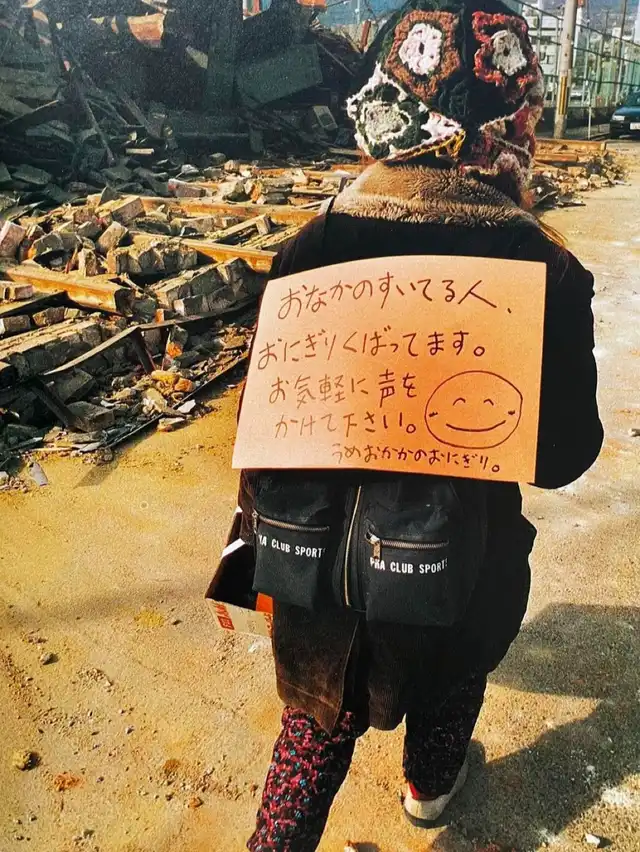 おなかのすいてる人、
おにぎりくばってます。
お気軽に声を
かけて下さい。
うめおかかのおにぎり。
CLUB SPORTS
CLUB SPORTS